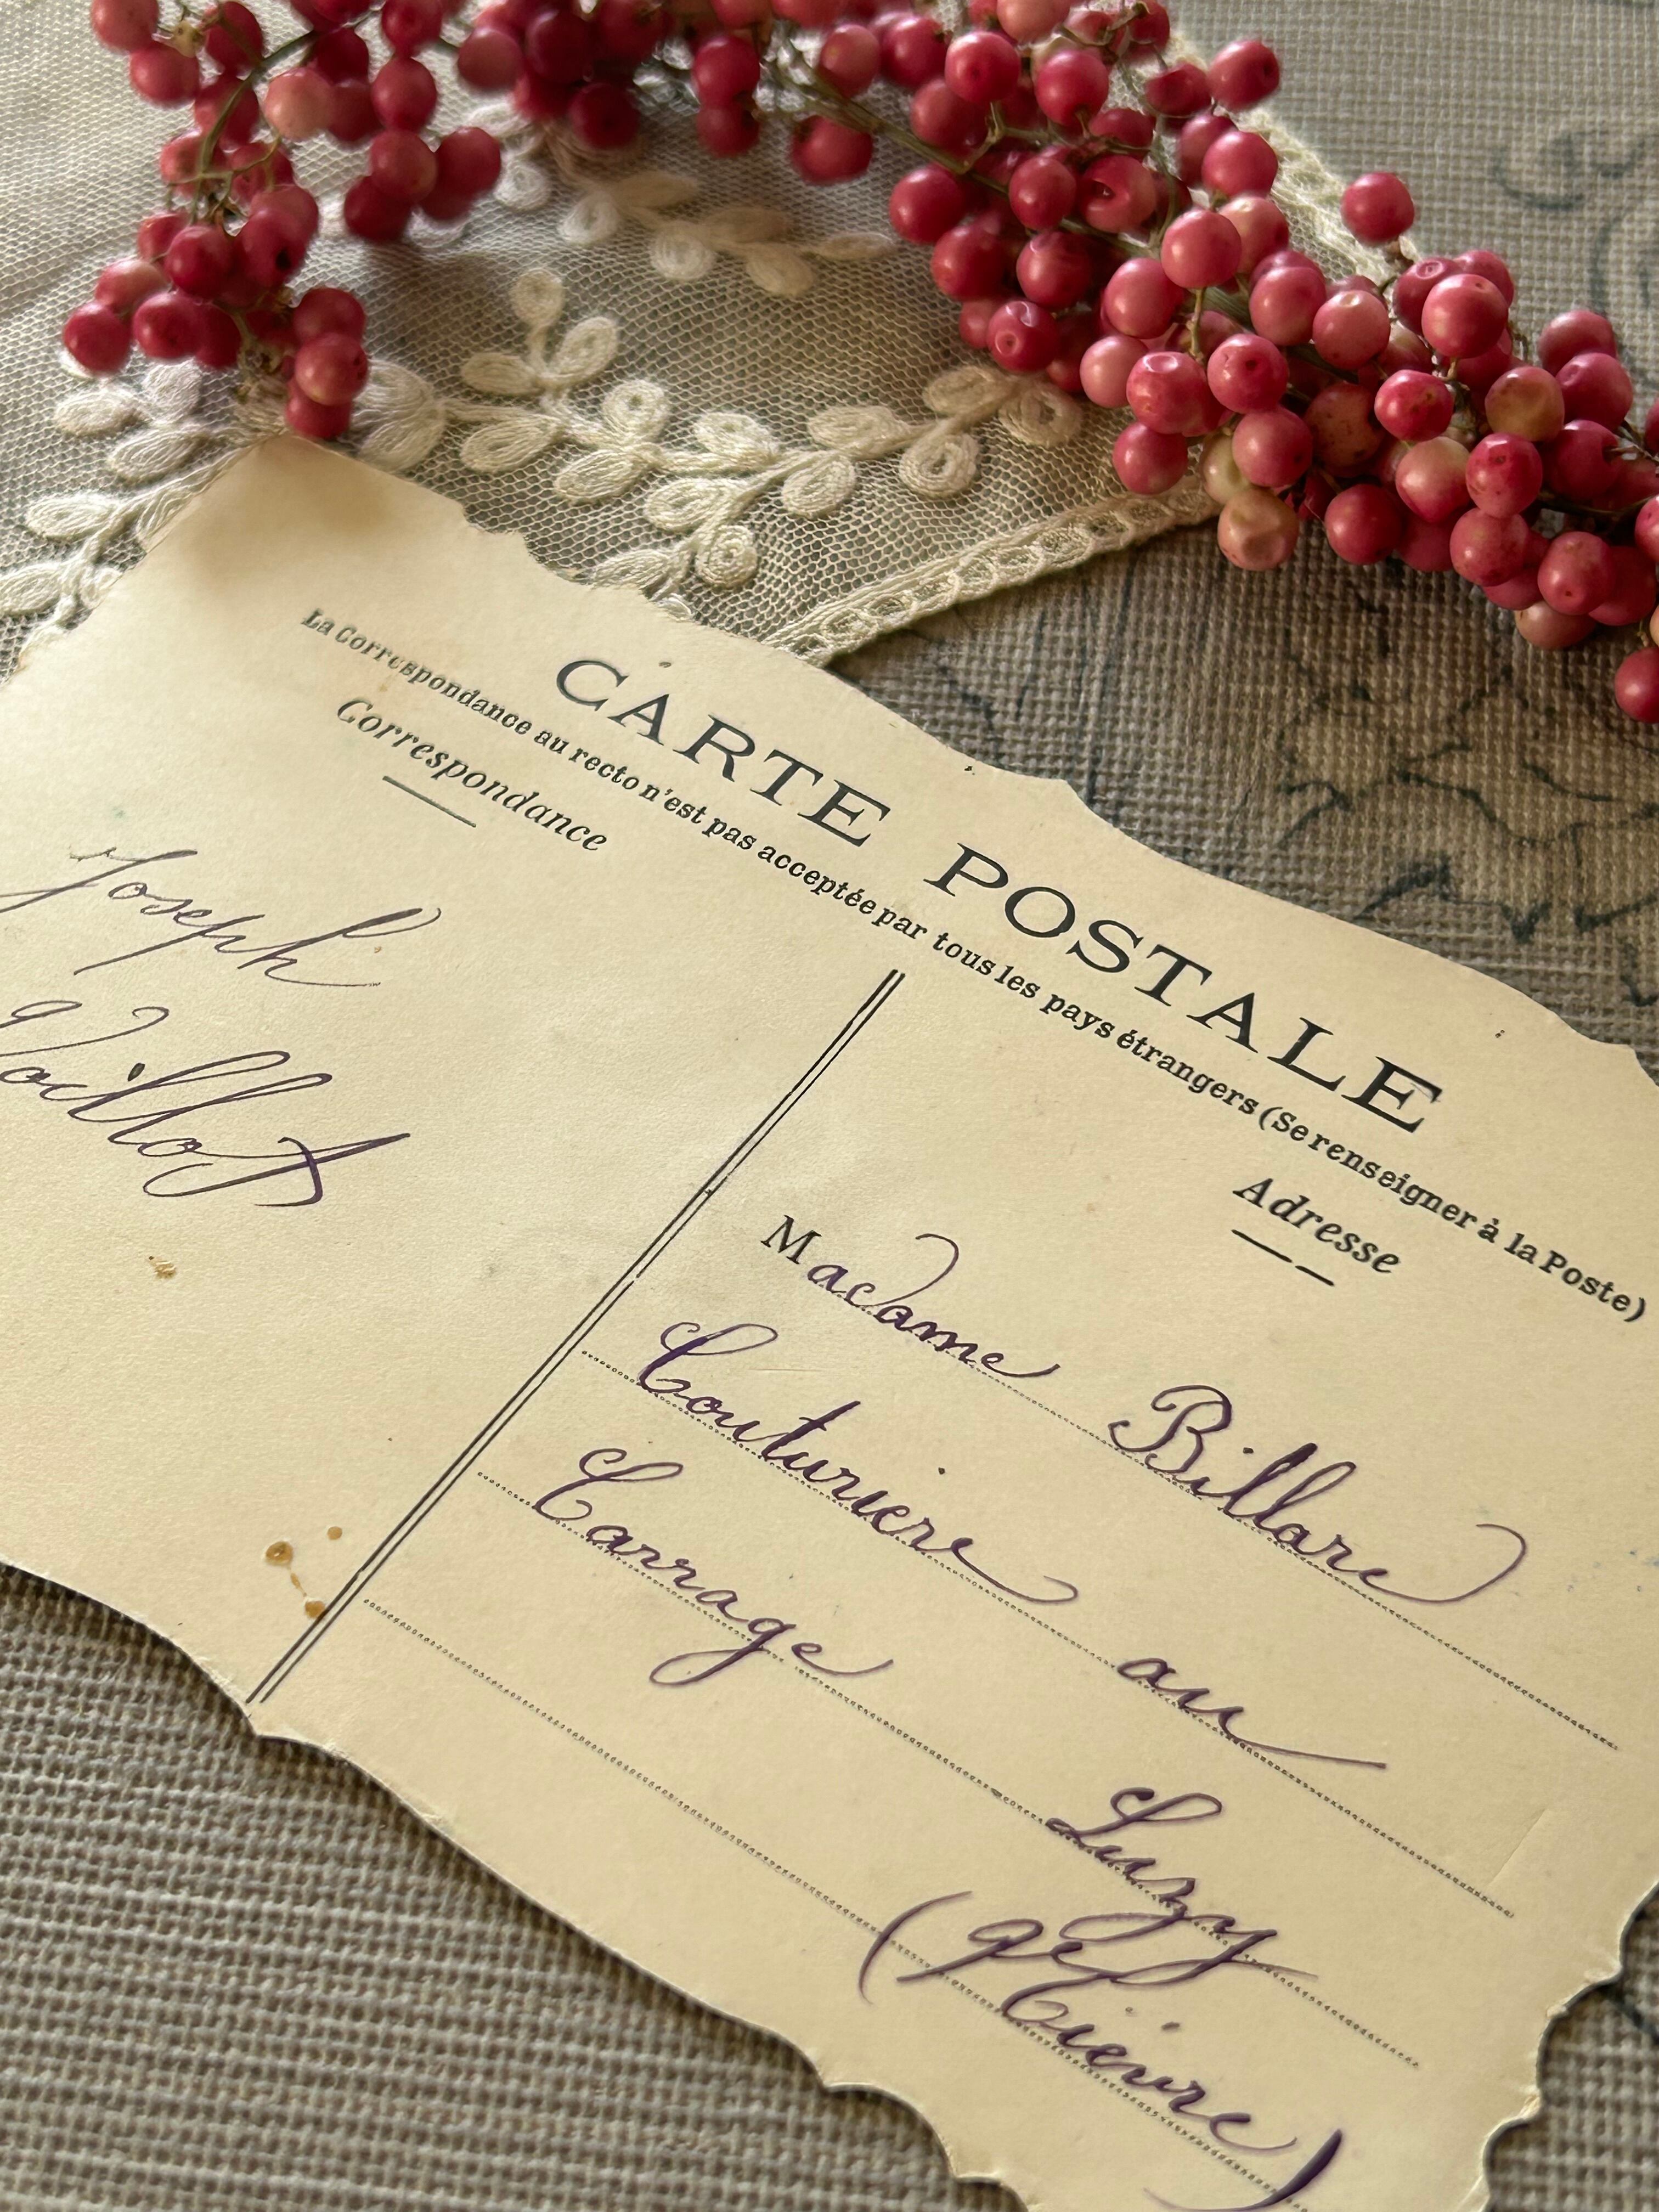 CARTE POSTALE
La Correspondance au recto n'est pas acceptée par tous les pays étrangers (Se renseigner à la Poste)
Correspondance
Adresse
Joseph
Voillot
Madame Billare
Couturiere au
Carrage
Luzy
(Nièvre)